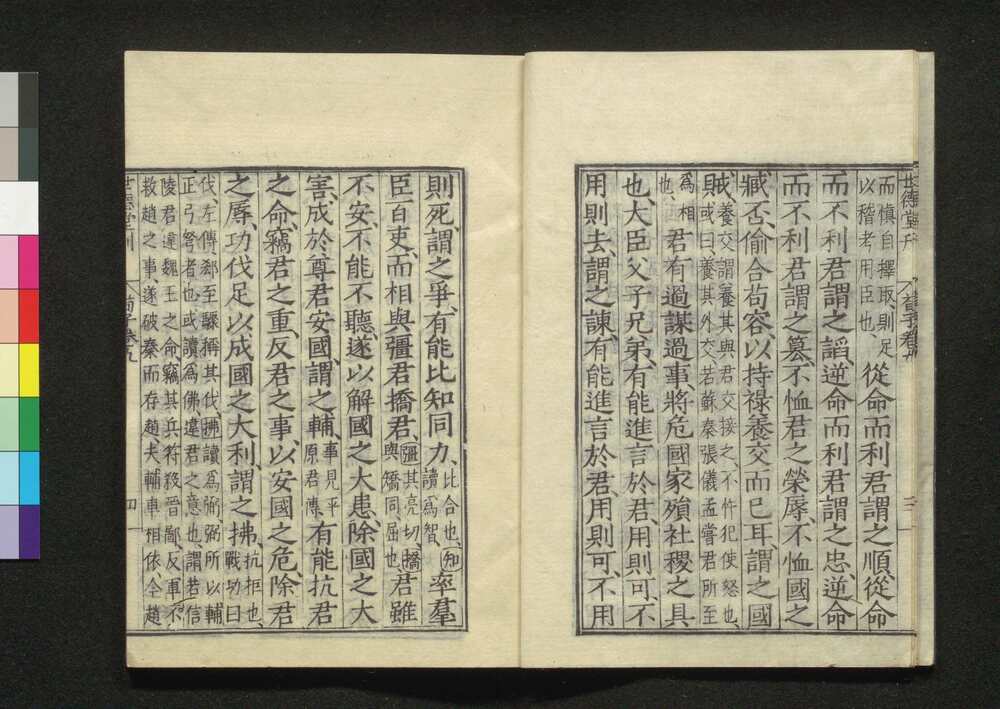 世德堂刊 荀子卷九 三
而愼自擇取、則足
以稽考用臣也、
從命而利君謂之順、從命
而不利君謂之謟、逆命而利君謂之忠、逆命
而不利君謂之篡、不恤君之榮辱不恤國之
臧否、偷合苟容、以持祿養交而已耳、謂之國
賊、
養交謂養其與君交接之人、不忤犯使怒也、
或曰養其外交、若蘇秦張儀孟嘗君所至
爲相
也、
君有過謀過事、將危國家殞社稷之具
也、大臣父子兄弟、有能進言於君、用則可、不
用則去、謂之諫、有能進言於君、用則可、不用
則死、謂之爭、有能比知同力、
比合也、知
讀爲智、
率羣
臣百吏、而相與彊君撟君、
彊其亮切、撟
與矯同、屈也、
君雖
不安、不能不聽、遂以解國之大患除國之大
害、成於尊君安國、謂之輔、
事見平
原君傳、
有能抗君
之命、竊君之重、反君之事、以安國之危、除君
之辱、功伐足以成國之大利、謂之拂、
抗拒也、
戰功曰
伐、左傳郤至驟稱其伐、拂讀爲弼、弼所以輔
正弓弩者也、或讀爲佛、違君之意也、謂若信
陵君違魏王之命、竊其兵符殺晉鄙、反軍不
救趙之事、遂破秦而存趙、夫輔車相依、今趙
世德堂刊 荀子卷九 四